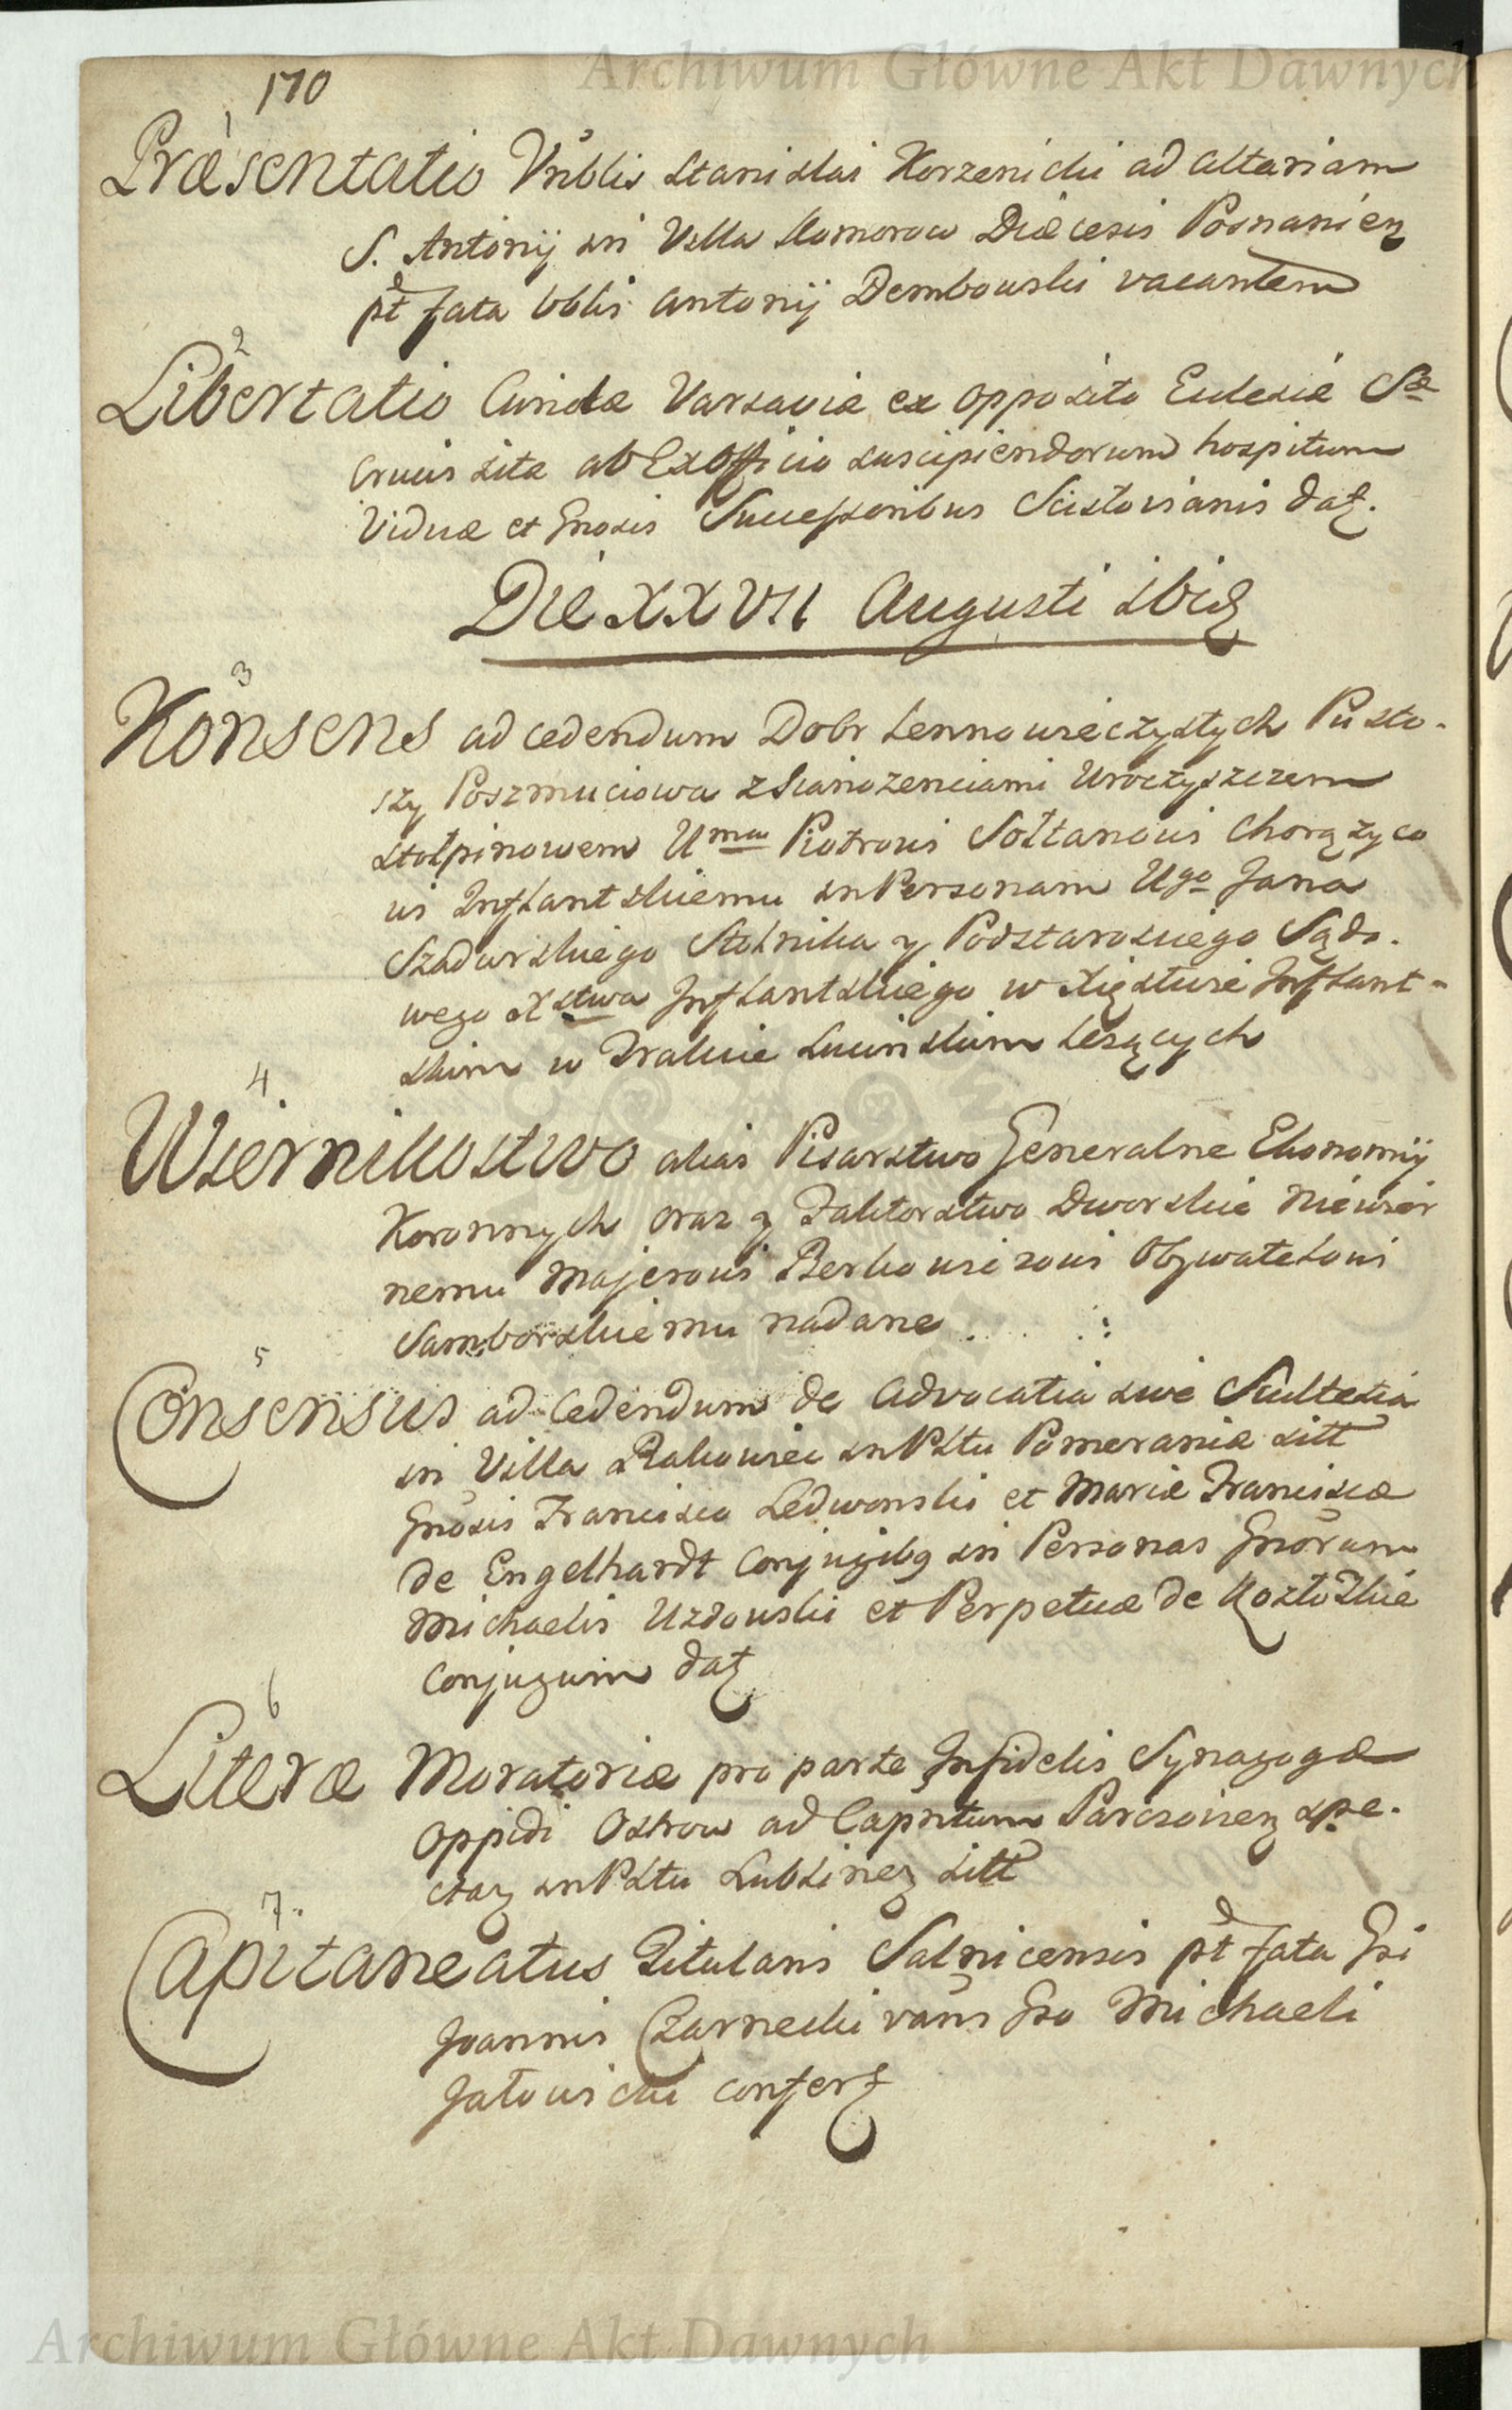 Archiwum Główne Akt Dawnych
170
1
Præsentatio Vnblis Stanislai Korzenicki ad altariam
S. Antonij in Villa Komorow Diæcesis Posnanien
pt fata Vblis Antonij Dembowski vacantem
2
Libertatio Curiolæ Varsaviæ ex opposito Eclesiæ Sæ
Crucis sitæ ab Exofficio suscipiendorum hospitum
Viduæ et Gnosis Successoribus Scistovianis dat.
Die XXVII Augusti ibid
3
Konsens ad cedendum Dobr Lennowieczystych Pusto-
szy Poszmuciowa z Sianożenciami Uroczyszczem
Stołpinowem Umu Piotrowi Sołtanowi Chorążyco
wi Inflantskiemu in Personam Ugo Jana
Szadurskiego Stolnika y Podstaroskiego Sądo-
wego Xstwa Inflantskiego w Xięstwie Inflant-
skim w Trakcie Lucinskim leżących
4
Wiernikostwo alias Pisarstwo Generalne Ekonomij
Koronnych oraz y Faktorstwo Dworskie niewier
nemu Majerowi Berkowiczowi Obywatelowi
Samborskiemu nadane . . . . :
5
Consensus ad Cedendum de Advocatia sive Scultetia
in Villa Rakowiec in Pltu Pomeraniæ sitt
Gnosis Francisco Ledwonski et Mariæ Franciscæ
de Engelhardt Conjugibq in Personas Gnorum
Michaelis Uzdowski et Perpetuæ de Kozłoskie
Conjugum dat
6
Literæ Moratoriæ pro parte Infidelis Synagogæ
Oppidi Ostrow ad Capntum Parczovien spe-
ctan in Pltu Lublinen sitt
7
Capitaneatus Titularis Salnicensis pt fata Gsi
Joannis Czarnecki vans Gso Michaeli
Jałowicki confert
Archiwum Główne Akt Dawnych